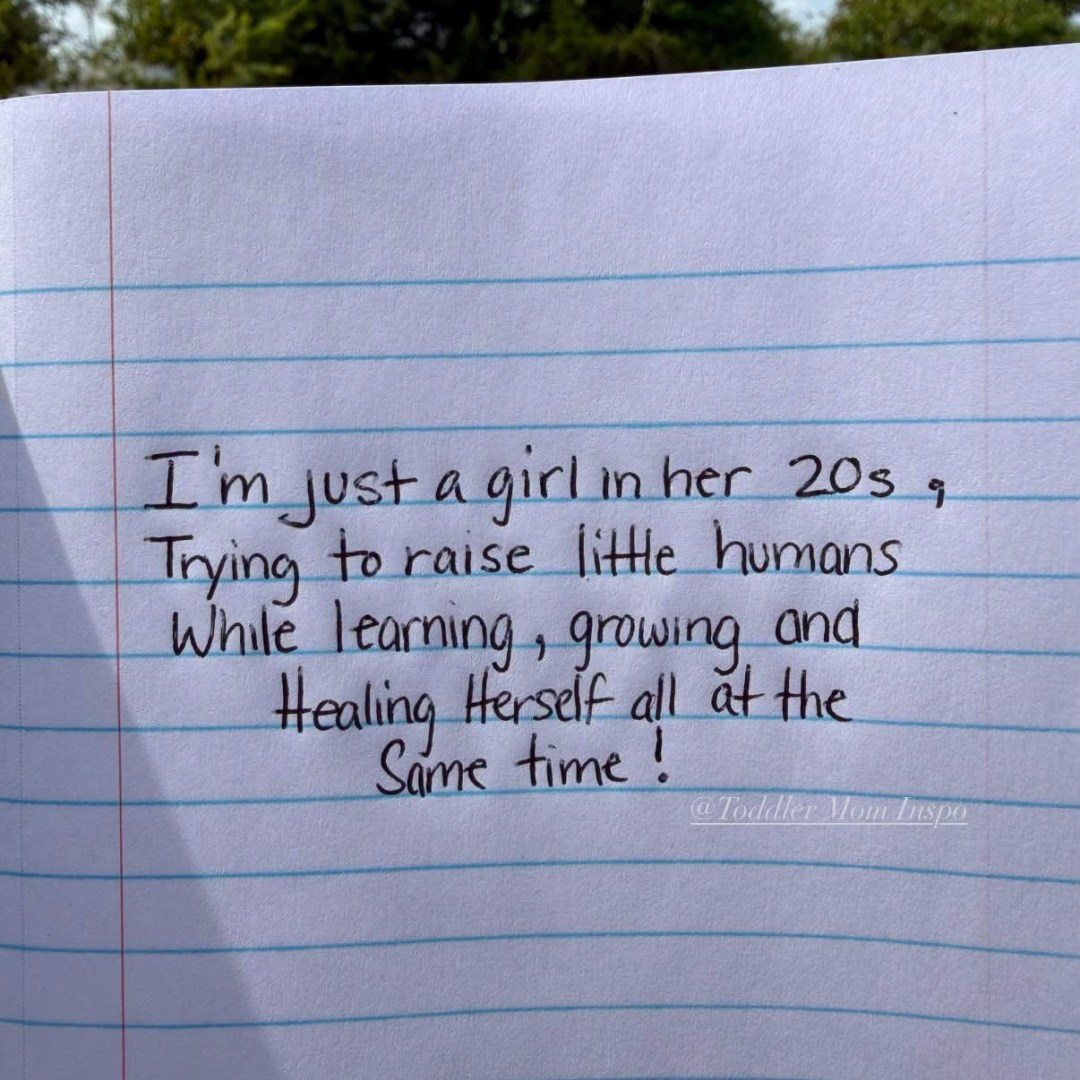 I'm just a girl in her 20s,
Trying to raise little humans
While learning, growing and
Healing Herself all at the
Same time!
@Toddler Mom Inspo